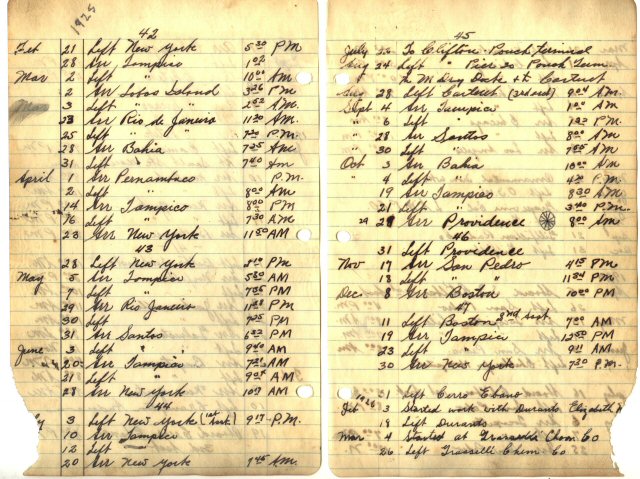 1925
42
Feb 21 Left New York 5 30 P M
28 Arr Tampico 1 02
Mar 2 Left " 10 00 AM
2 Arr Lobos Island 3 26 P M
Mar 3 Left " 2 52 A M.
23 Arr Rio de Janeiro 11 30 AM.
25 Left " 7 20 P. M.
28 Arr Bahia 7 25 AM
31 Left " 7 40 Am
April 1 Arr Pernambuco P. M.
2 Left " 8 00 AM
14 Arr Tampico 8 00 PM
16 Left " 7 30 A M.
23 Arr New York 11 50 AM
43
28 Left New York 5 10 PM
May 5 Arr Tampico 5 30 AM
7 Left " 7 35 PM
29 Arr Rio Janeiro 11 38 P M.
30 Left " 7 25 PM
31 Arr Santos 6 32 PM
June 3 Left " 9 40 AM
20 Arr Tampico 7 21 AM
21 Left " 9 05 AM
28 Arr New York 10 7 AM
44
ly 3 Left New York (1st 9 17 P. M.
10 Arr Tampico
12 Left
20 Arr New York 7 45 AM.
45
July 22 To Clifton. Pouch Terminal
Aug 24 Left " Pier 20 Pouch Term
" To M Dry Dock & to Carteret
Aug 28 Left Carteret (3rd 9 04 AM.
Sept 4 Arr Tampico 10 00 AM
" 6 Left " 12 25 PM
" 28 Arr Santos 8 00 AM
" 30 Left " 7 55 AM
Oct 3 Arr Bahia 10 00 AM
" 4 Left " 4 30 P.M.
19 Arr Tampico 8 30 AM
21 Left " 3 40 P.M.
29 Arr Providence 8 00 AM
46
31 Left Providence
Nov 17 Arr San Pedro 4 15 PM
18 Left " " 11 34 PM
Dec 8 Arr Boston 10 00 PM
47
11 Left Boston 2nd Asst. 7 00 AM
19 Arr Tampico 12 50 PM
23 Left " 9 11 AM
30 Arr New York 7 30 P.M.
31 Left Cerro Ebano
1926
Feb 3 Started work with Durants Elizabeth
18 Left Durants
Mar 4 Started at Grasselli Chem Co
26 Left Grasselli Chem Co